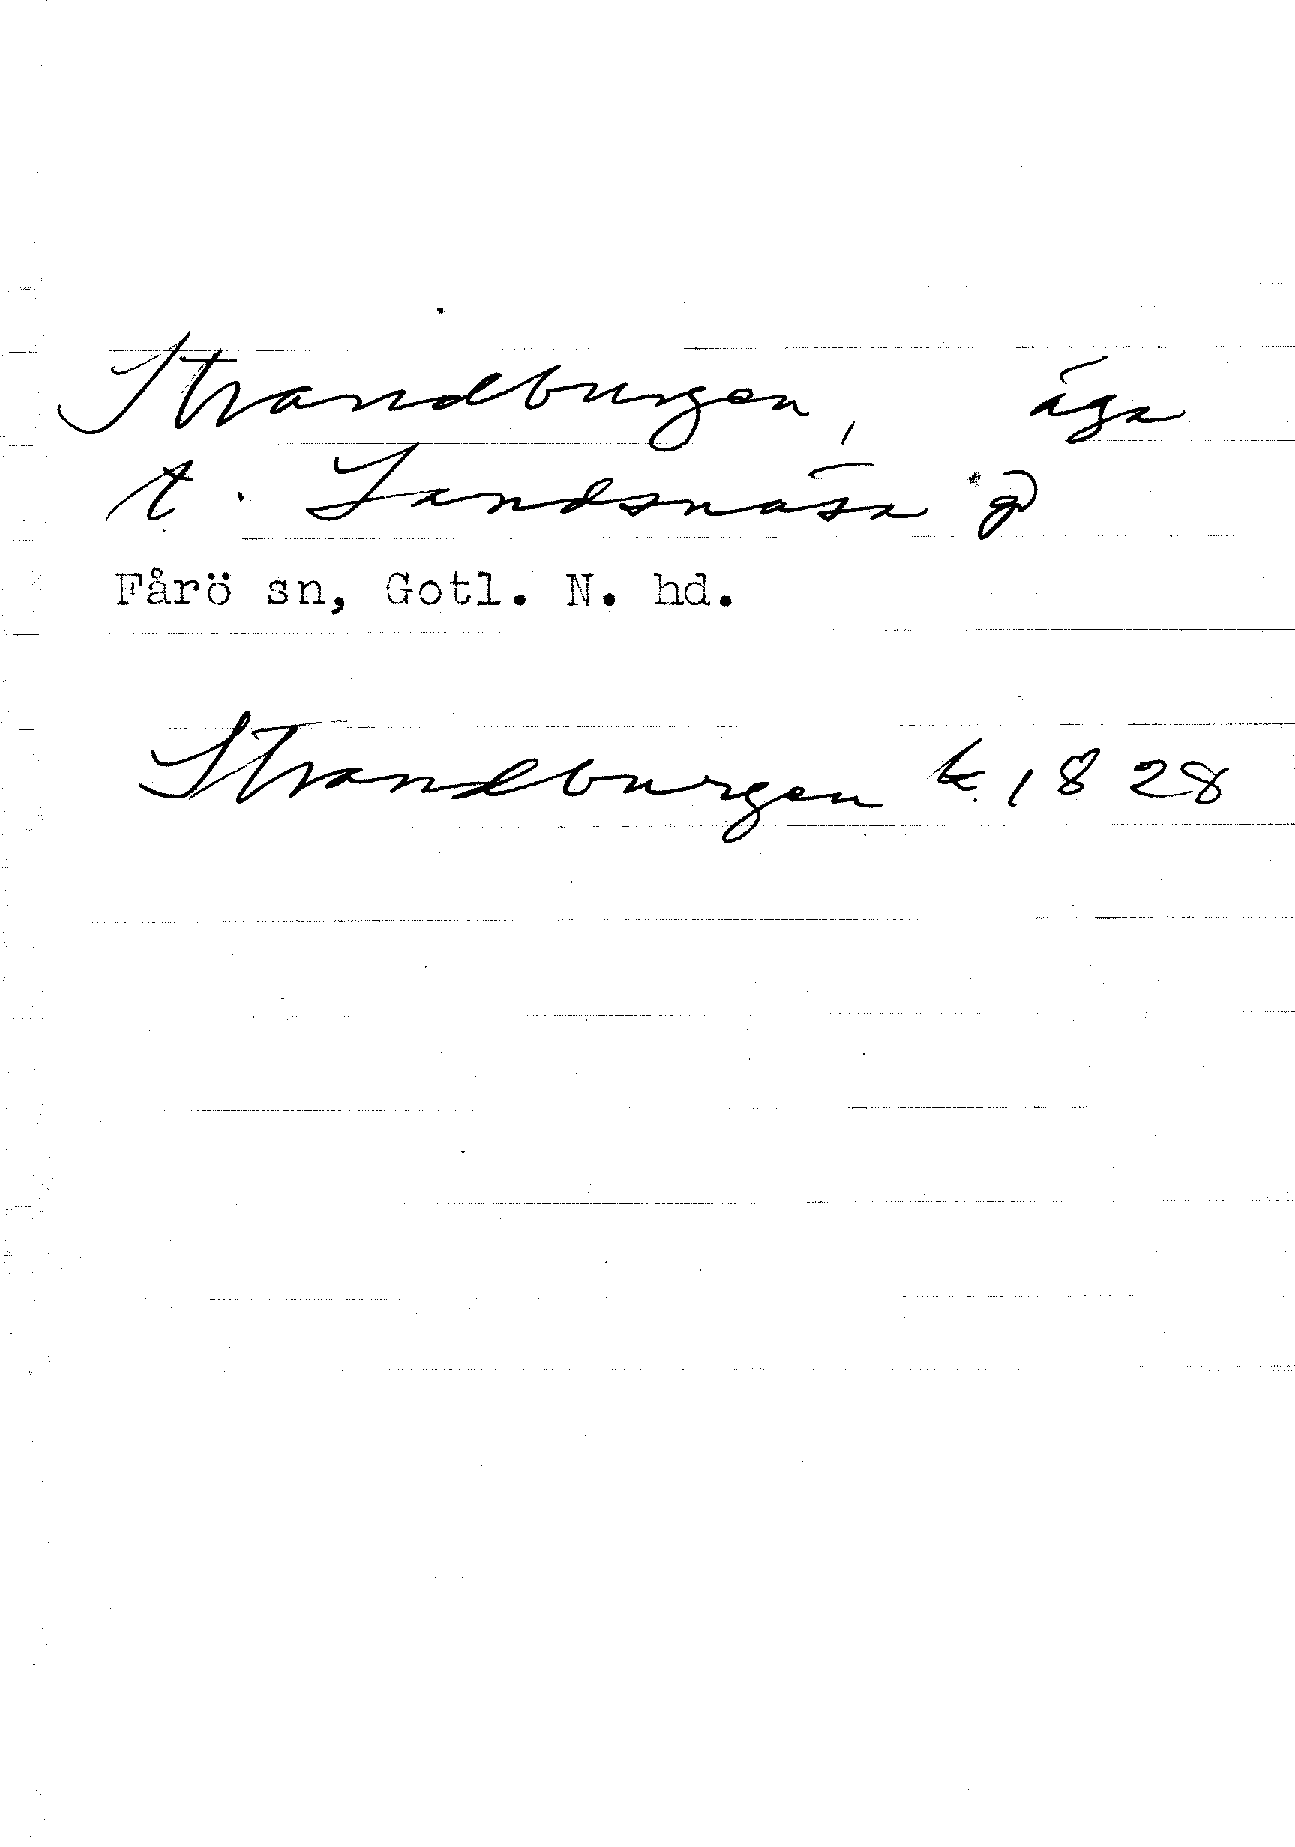 Strandburgen, äga
t. Landsnäsa gd
Fårö sn, Gotl. N. hd.
Strandburgen k. 1828